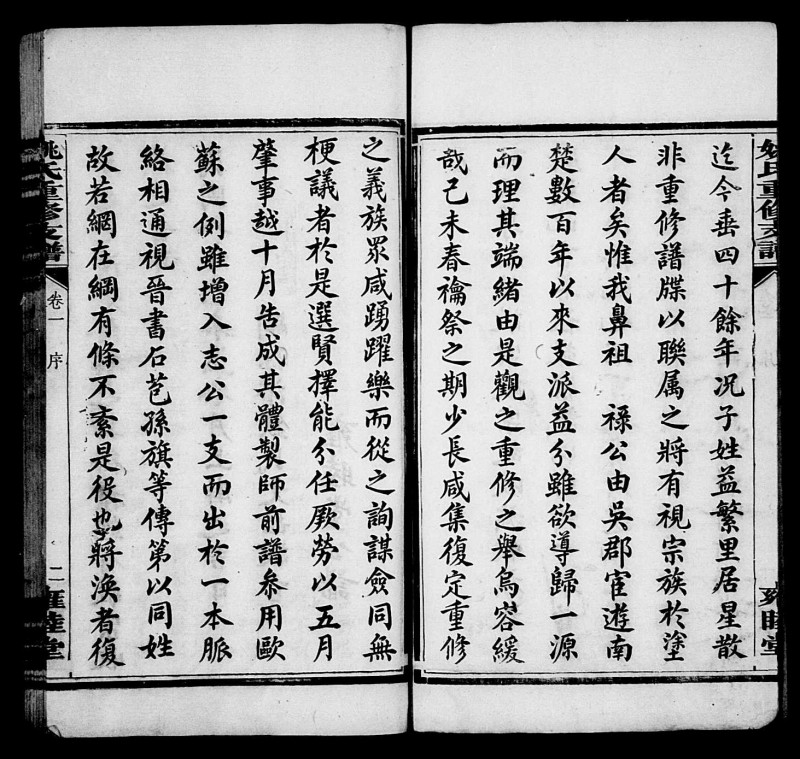 姚氏重修支譜
雍睦堂
迄今垂四十餘年况子姓益繁里居星散
非重修譜牒以聯属之將有視宗族於塗
人者矣惟我鼻祖　祿公由吳郡宦遊南
楚數百年以來支派益分雖欲導歸一源
而理其端緒由是觀之重修之舉烏容緩
哉己未春禴祭之期少長咸集復定重修
之義族眾咸踴躍樂而從之詢謀僉同無
梗議者於是選賢擇能分任厥勞以五月
肇事越十月告成其體製師前譜叅用歐
蘇之例雖增入志公一支而出於一本脈
絡相通視晉書石苞孫旗等傳第以同姓
故若網在綱有條不紊是役也將渙者復
姚氏重修支譜
卷一　序
二
雍睦堂